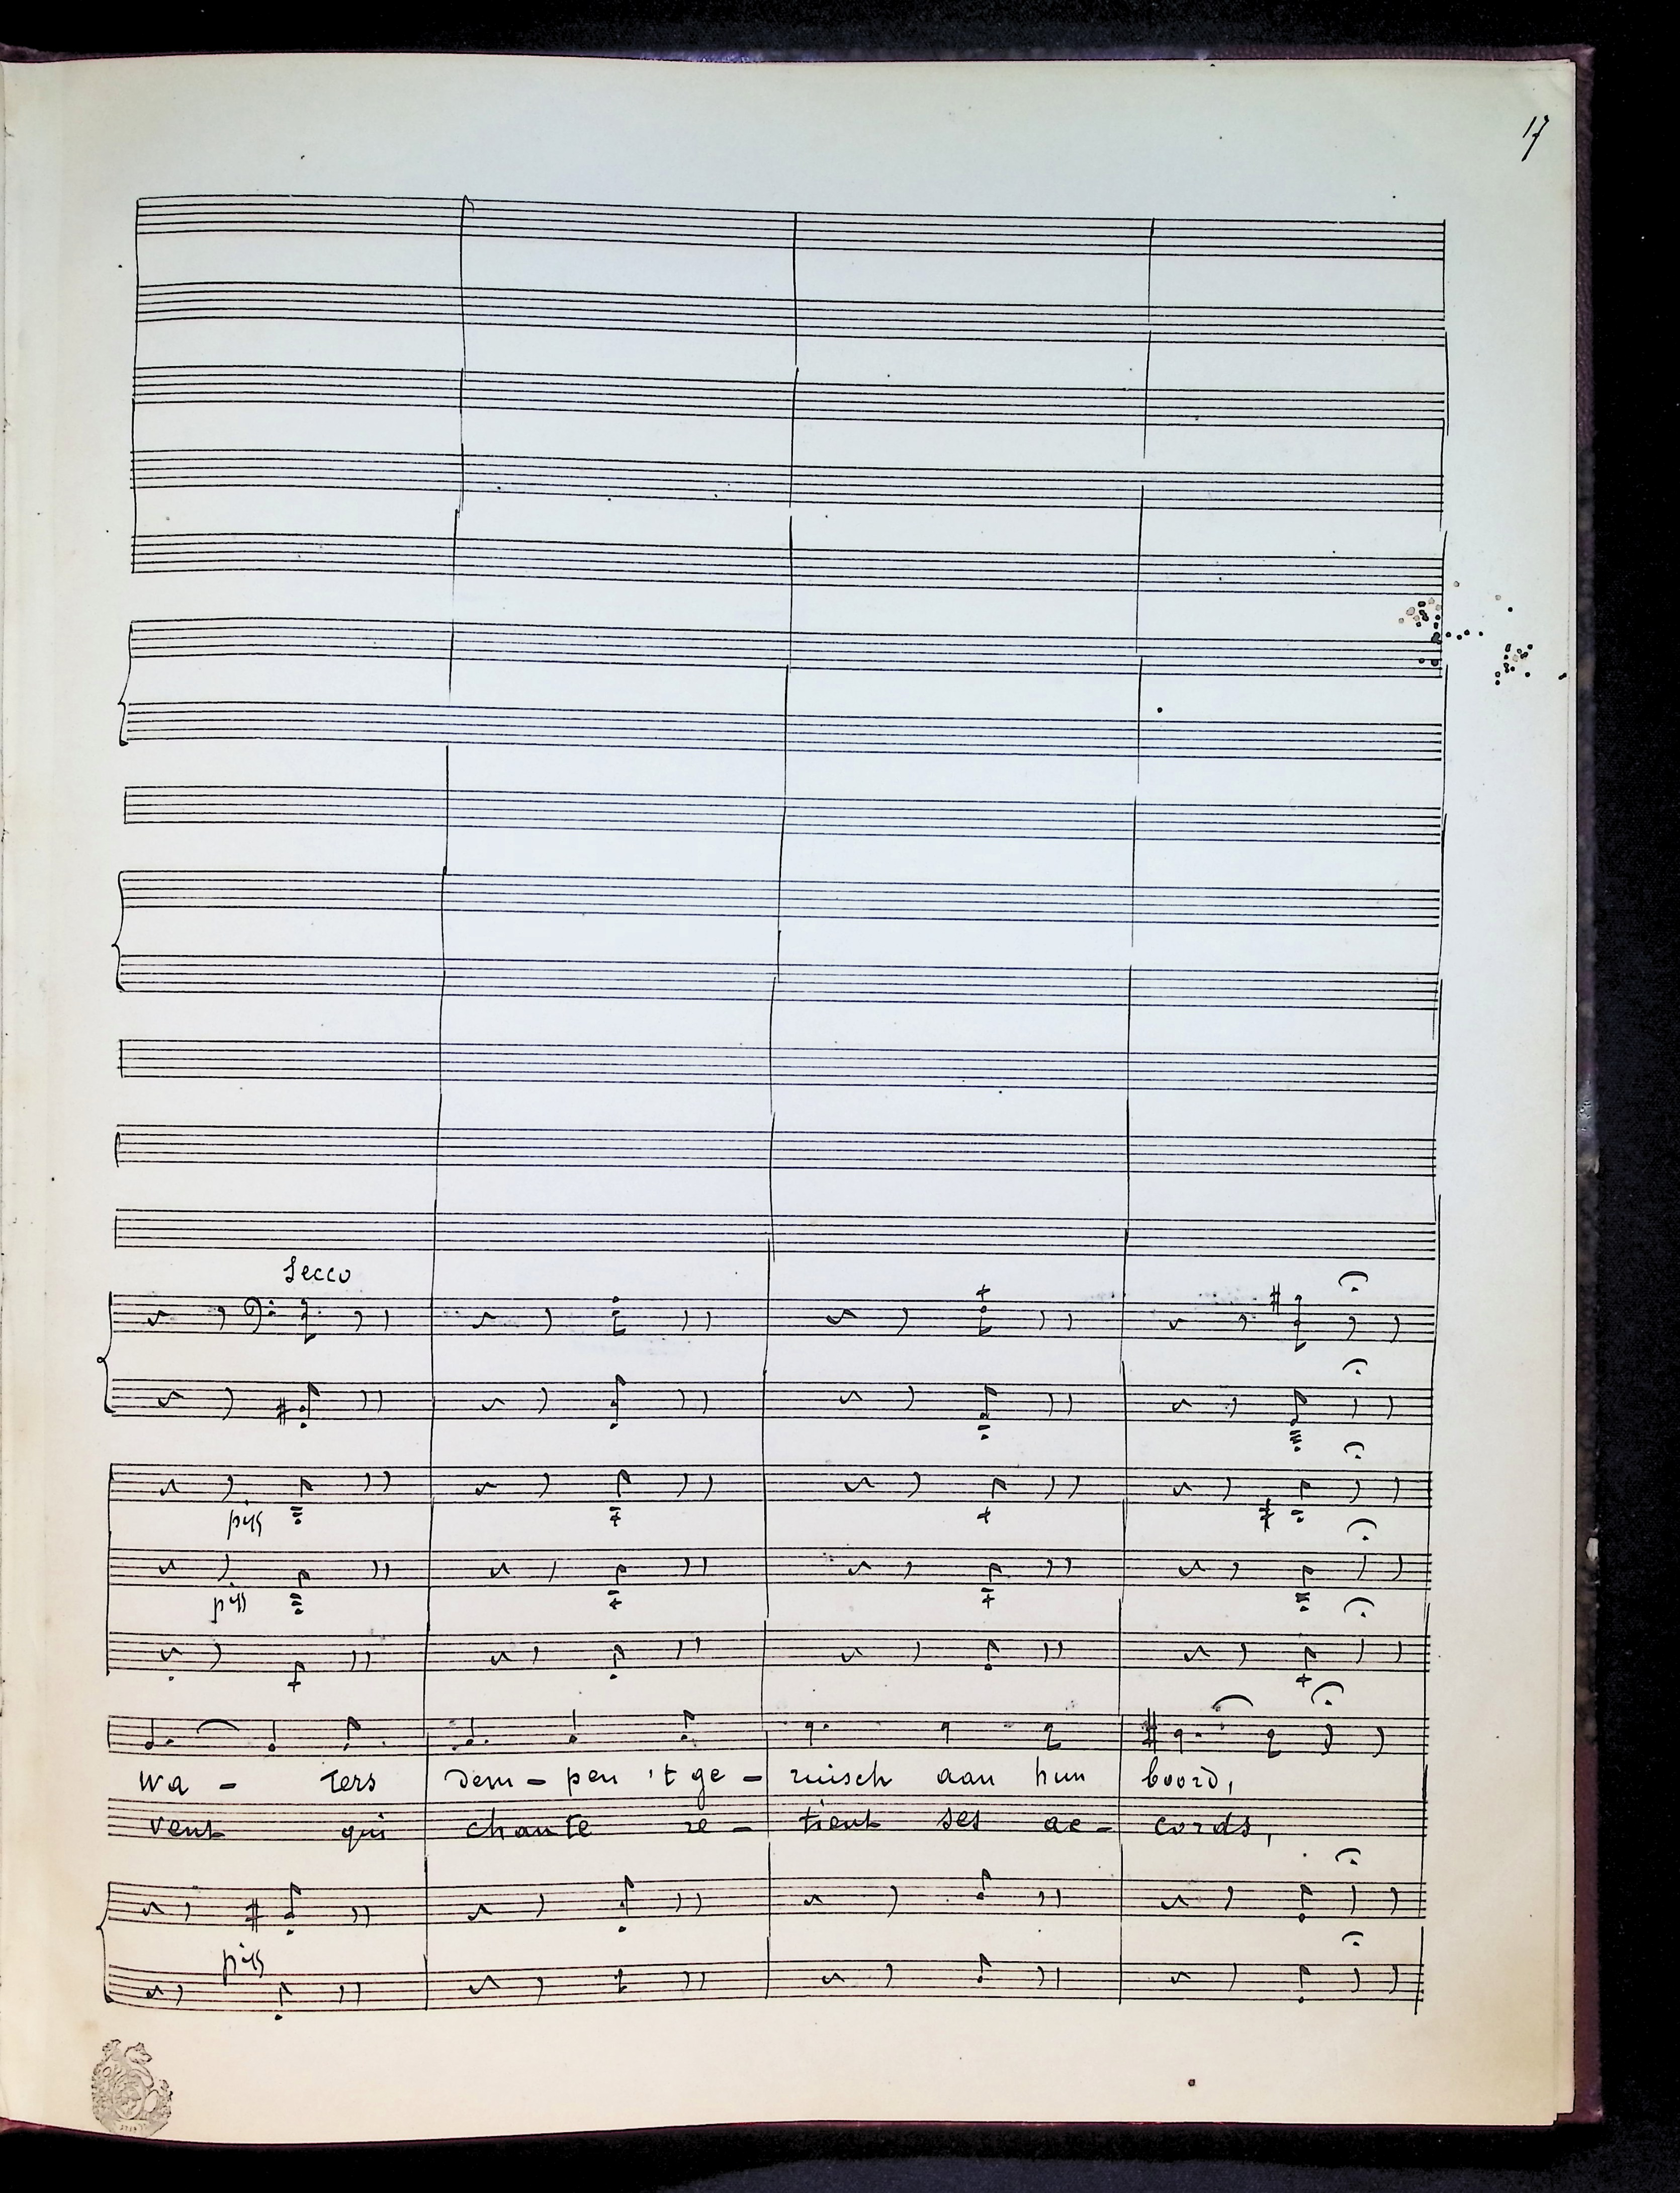 17
secco
pizz
pizz
wa - ters dem - pen 't ge - ruisch aan hun boord,
vent qui chante re - tient ses ac - cords,
pizz